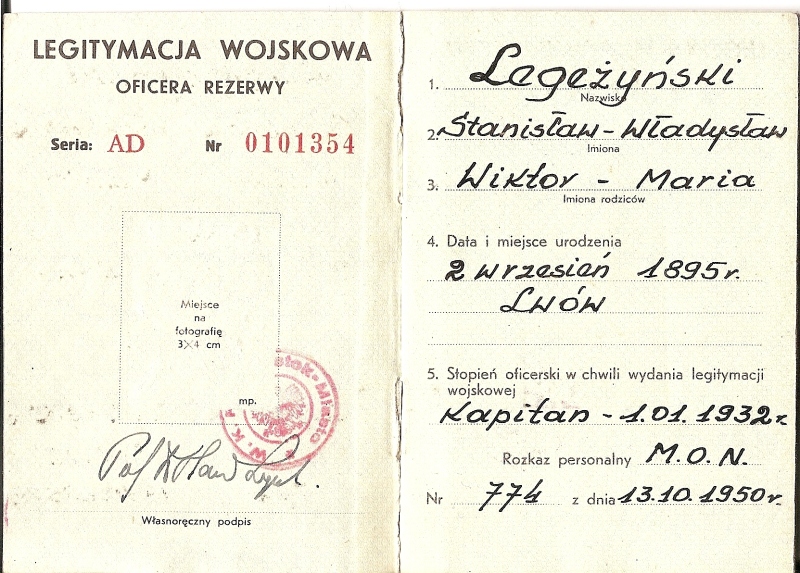 LEGITYMACJA WOJSKOWA
OFICERA REZERWY
Seria: AD Nr 0101354
Miejsce
na
fotografię
3×4 cm
mp.
W.K.R.
Miasto
Własnoręczny podpis
1. Legeżyński
Nazwisko
2. Stanisław-Władysław
Imiona
3. Wiktor - Maria
Imiona rodziców
4. Data i miejsce urodzenia
2 wrzesień 1895r.
Lwów
5. Stopień oficerski w chwili wydania legitymacji
wojskowej
Kapitan - 1.01.1932r.
Rozkaz personalny M.O.N.
Nr 774 z dnia 13.10.1950r.